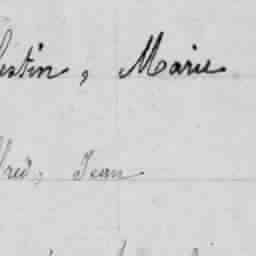 lestin, Marie
fred, Jean